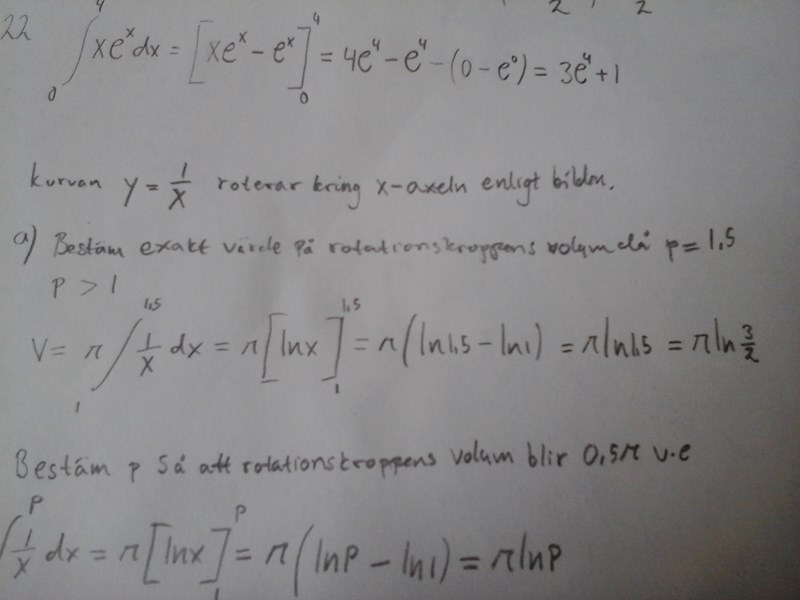 22 ∫₀⁴ xeˣdx = [xeˣ - eˣ]₀⁴ = 4e⁴ - e⁴ - (0 - e⁰) = 3e⁴ + 1
kurvan y = 1/x roterar kring x-axeln enligt bilden.
a) Bestäm exakt värde på rotationskroppens volym då p = 1,5
p > 1
V = π ∫₁^1,5 1/x dx = π [lnx]₁^1,5 = π (ln1,5 - ln1) = πln1,5 = πln 3/2
Bestäm p så att rotationskroppens volum blir 0,5π v.e
∫^p 1/x dx = π [lnx]₁^p = π (lnp - ln1) = πlnp